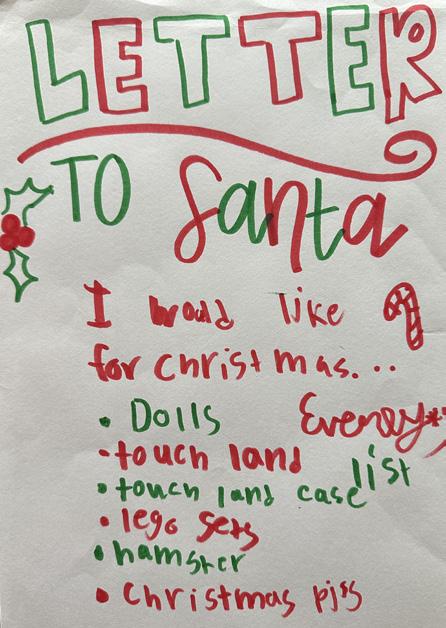 LETTER
TO Santa
I would like
for christmas...
• Dolls
• touch land
• touch land case
• lego sets
• hamster
• Christmas pjs
list